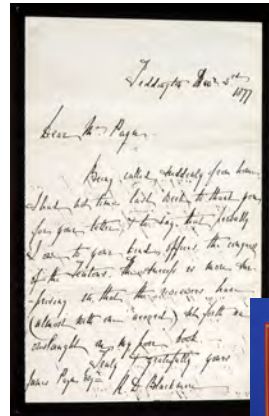 Teddington Dec 3rd
1877
Dear Mr Payn
Being called suddenly from home
I had not time last week to thank you
for your letter, & to say that probably
I owe to your kind offices the
of the Sentence. The is more
 so, that the reviewers have
(almost with one accord) set forth an
onslaught on my poor book.
Truly & gratefully yours
James Payn Esqre R. D. Blackmore